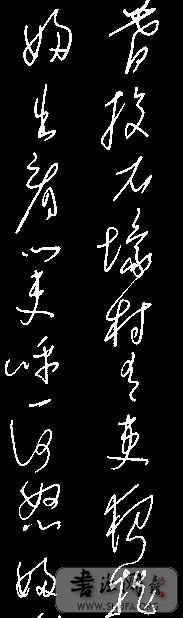 暮投石壕村有吏夜捉
婦出看门吏呼一何怒婦
書法